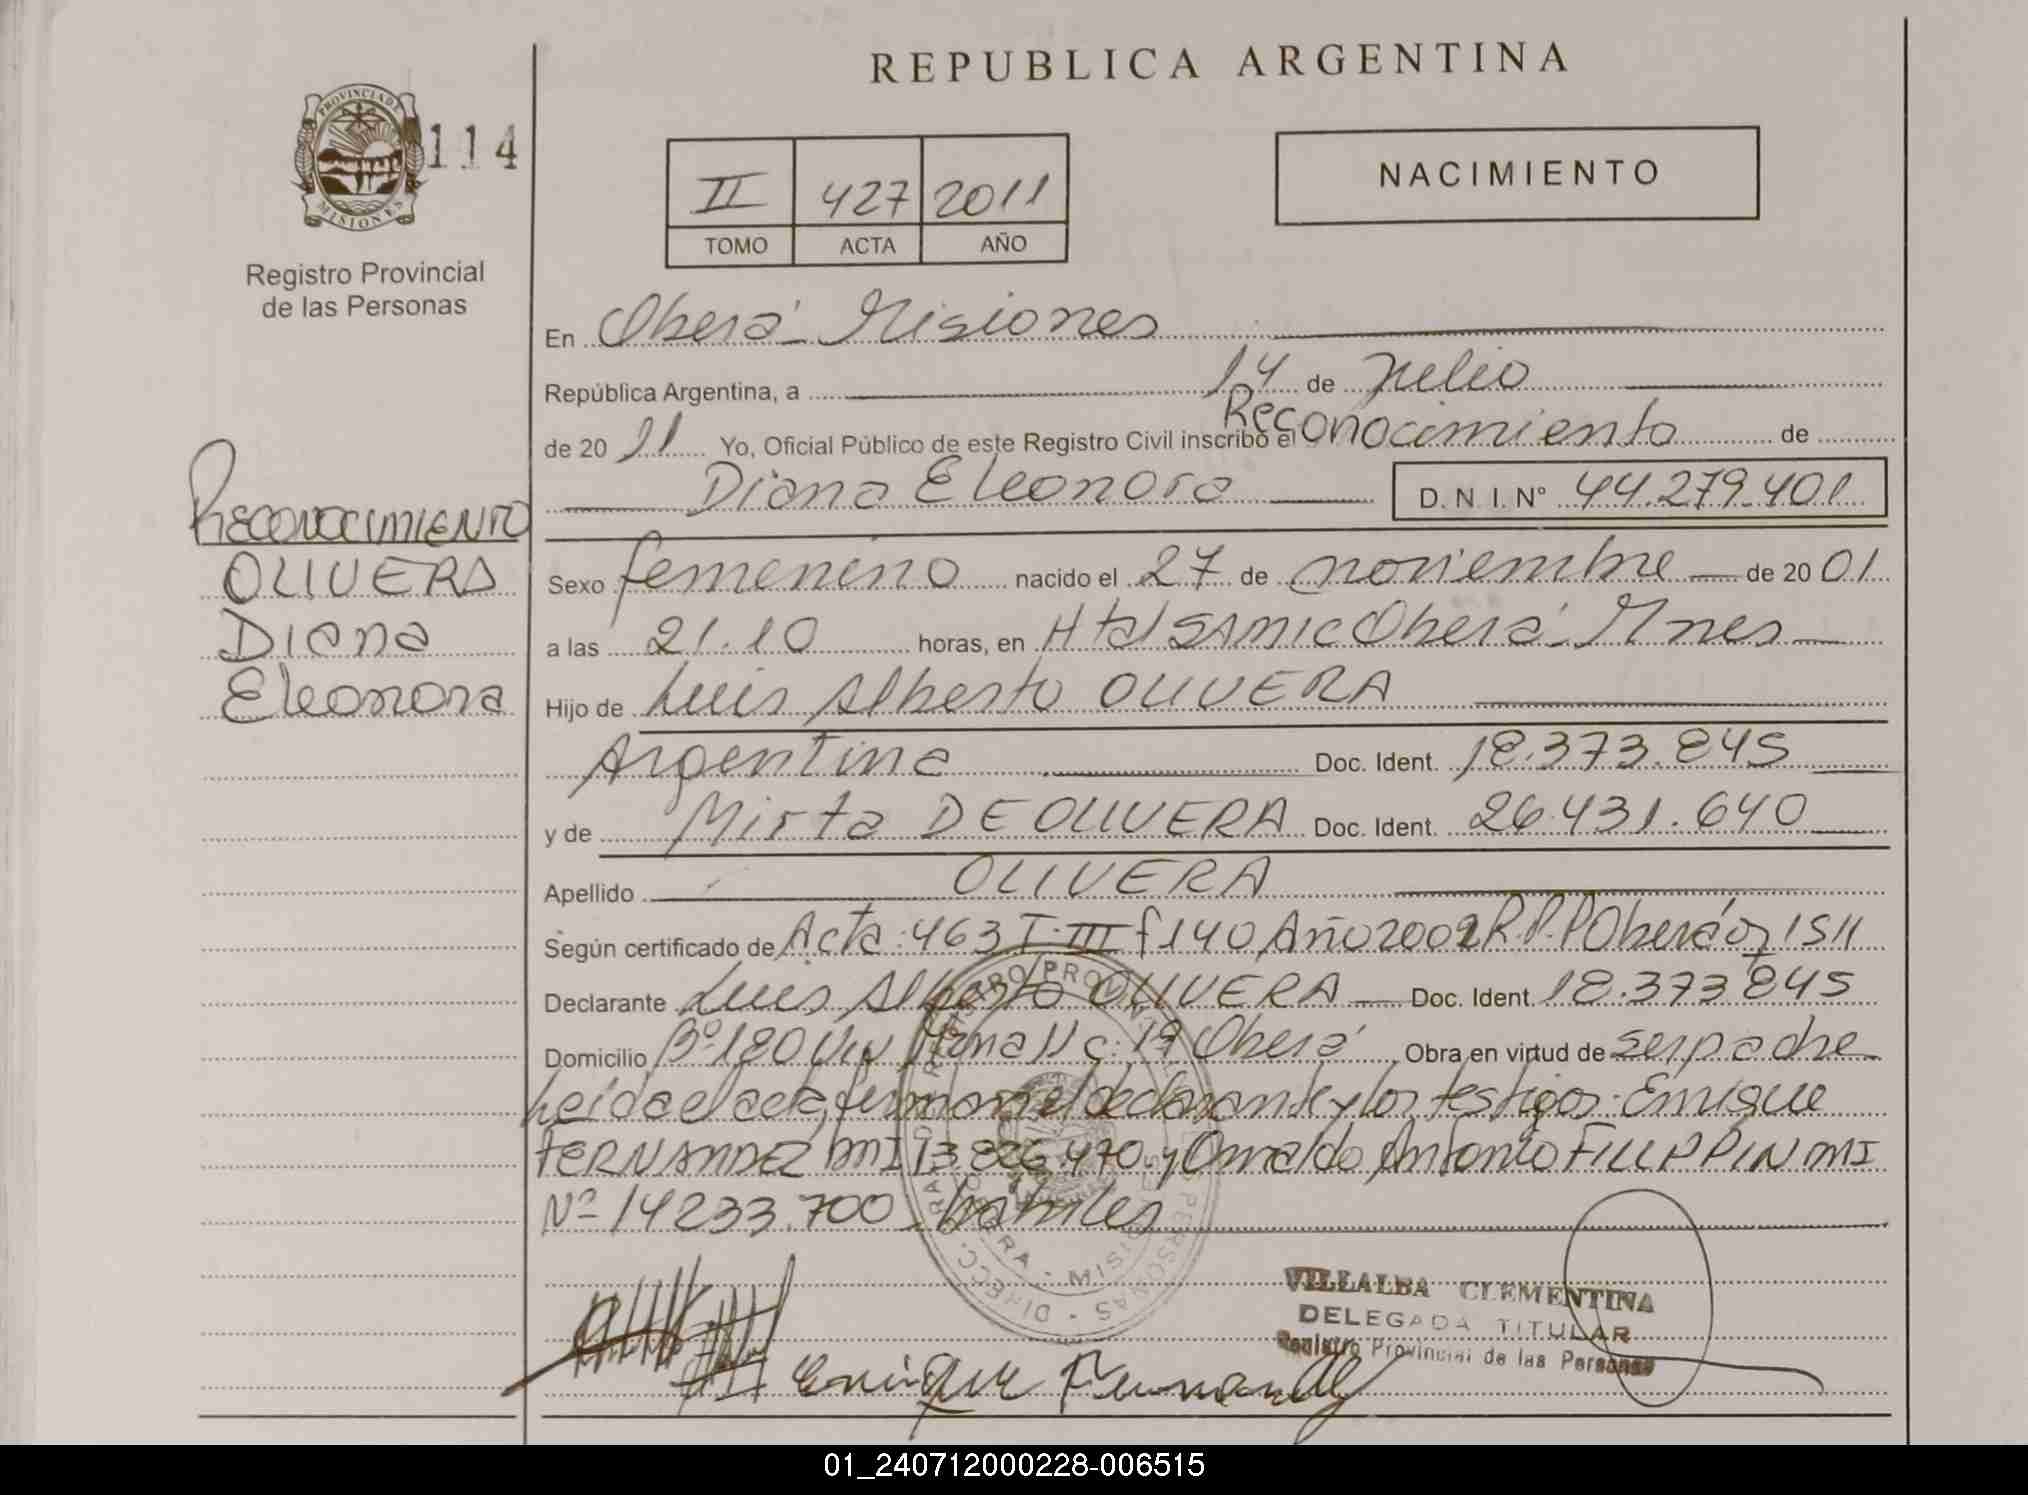 REPUBLICA ARGENTINA
PROVINCIA DE
MISIONES
114
Registro Provincial
de las Personas
II 427 2011
TOMO ACTA AÑO
NACIMIENTO
En Oberá Misiones
República Argentina, a 14 de Julio
de 20 11 Yo, Oficial Público de este Registro Civil inscribo el Reconocimiento de
Diana Eleonora D. N. I. N° 44.279.401
RECONOCIMIENTO
OLIVERA
Diana
Eleonora
Sexo femenino nacido el 27 de noviembre de 20 01
a las 21.10 horas, en Htal SAMIC Oberá Mnes
Hijo de Luis Alberto OLIVERA
Argentina Doc. Ident. 18.373.845
y de Mirta DE OLIVERA Doc. Ident. 26.431.640
Apellido OLIVERA
Según certificado de Acta: 463 T. III f 140 Año 2002 R.P.P Oberá 1511
Declarante Luis Alberto OLIVERA Doc. Ident. 18.373.845
Domicilio Bº 180 Viv Mana 11 c: 19 Oberá Obra en virtud de ser padre
Leida el acta, firman el declarante y los testigos: Enrique
FERNANDEZ MI 13.826.470 y Osvaldo Antonio FILIPPIN MI
Nº 14233.700 habiles
VILLALBA CLEMENTINA
DELEGADA TITULAR
Registro Provincial de las Personas
Enrique Fernandez
01_240712000228-006515